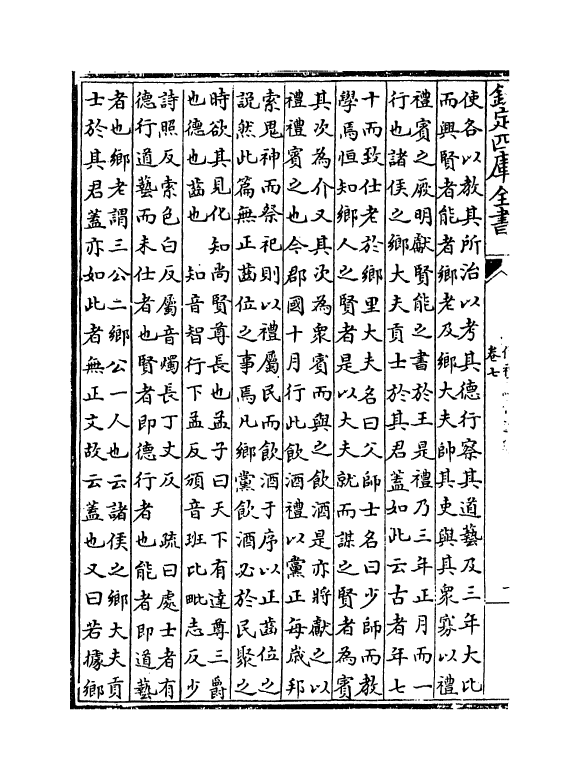 欽定四庫全書
卷七
使各以教其所治以考其德行察其道藝及三年大比
而興賢者能者鄉老及鄉大夫帥其吏與其衆寡以禮
禮賓之厥明獻賢能之書於王是禮乃三年正月而一
行也諸侯之鄉大夫貢士於其君蓋如此云古者年七
十而致仕老於鄉里大夫名曰父師士名曰少師而教
學焉恒知鄉人之賢者是以大夫就而謀之賢者為賓
其次為介又其次為衆賓而與之飲酒是亦將獻之以
禮禮賓之也今郡國十月行此飲酒禮以黨正每歲邦
索鬼神而祭祀則以禮屬民而飲酒于序以正齒位之
說然此篇無正齒位之事焉凡鄉黨飲酒必於民聚之
時欲其見化知尚賢尊長也孟子曰天下有達尊三爵
也德也齒也　知音智行下孟反頒音班比毗志反少
詩照反索色白反屬音燭長丁丈反　疏曰處士者有
德行道藝而未仕者也賢者即德行者也能者即道藝
者也鄉老謂三公二鄉公一人也云諸侯之鄉大夫貢
士於其君蓋亦如此者無正文故云蓋也又曰若據鄉